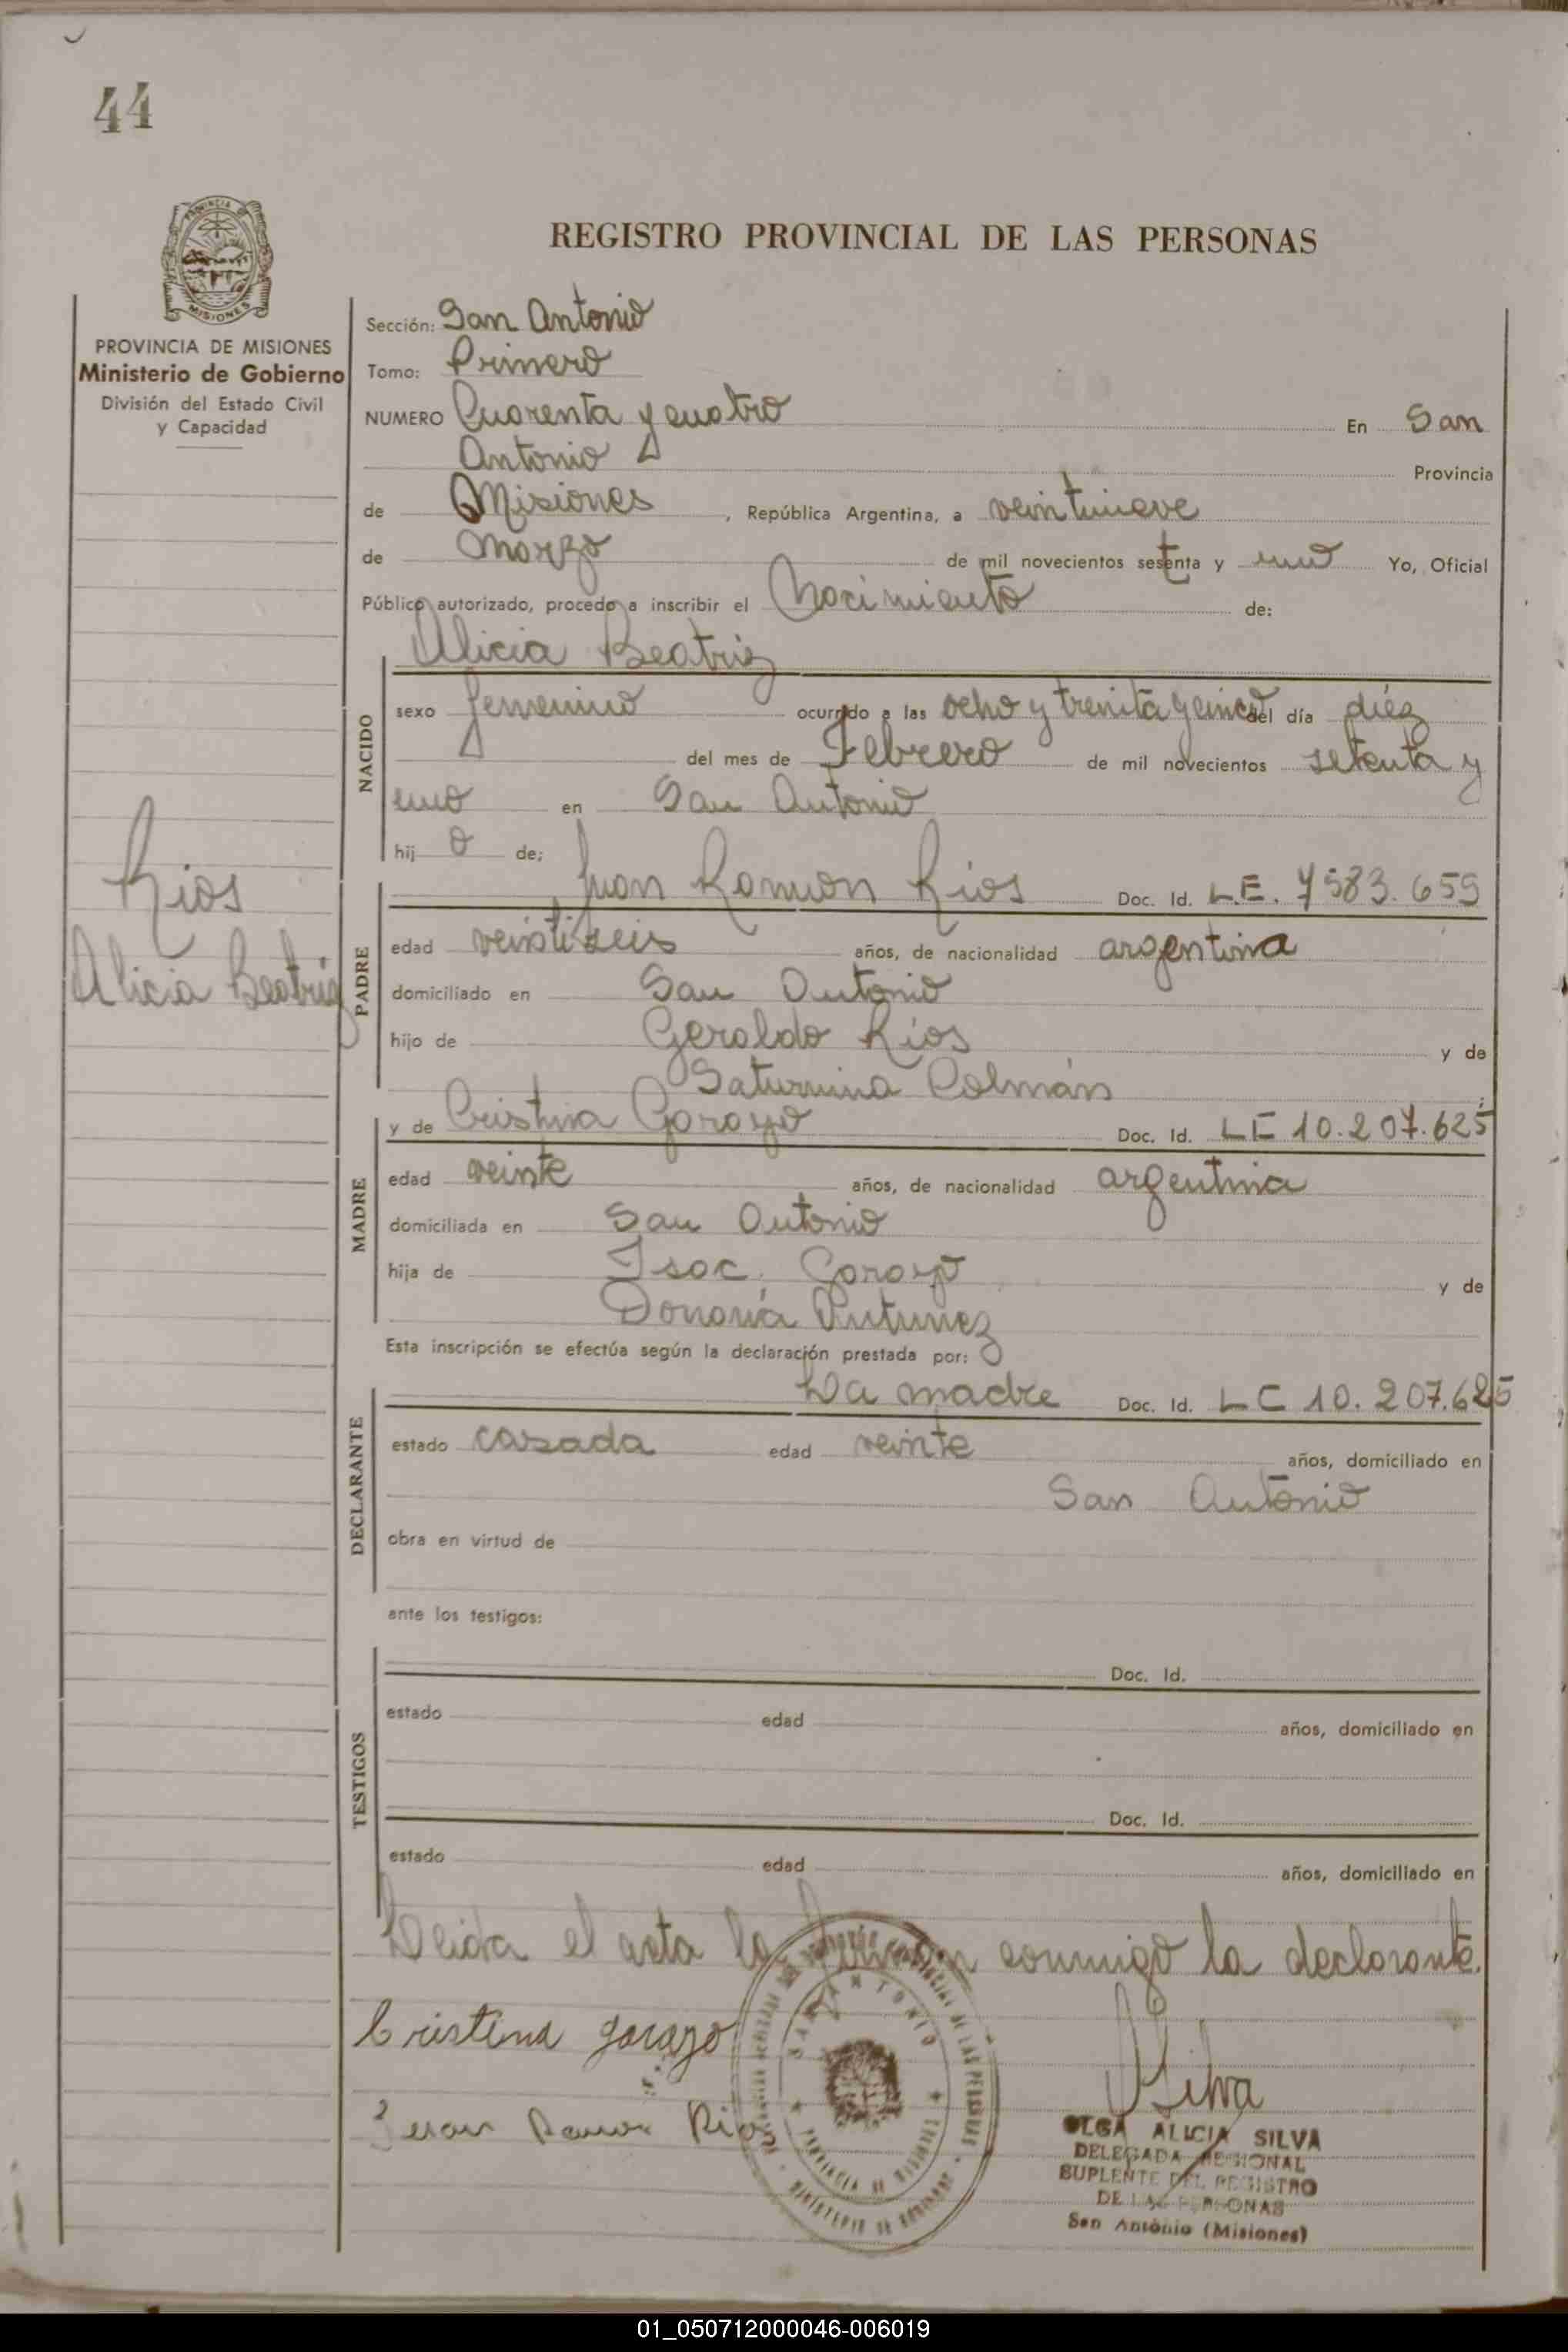 44
REGISTRO PROVINCIAL DE LAS PERSONAS
PROVINCIA DE MISIONES
Ministerio de Gobierno
División del Estado Civil
y Capacidad
Sección: San Antonio
Tomo: Primero
NUMERO Cuarenta y cuatro En San
Antonio Provincia
de Misiones, República Argentina, a veintinueve
de Marzo de mil novecientos setenta y uno Yo, Oficial
Público autorizado, procedo a inscribir el Nacimiento de:
Alicia Beatriz
NACIDO
sexo femenino ocurrido a las ocho y treinta y cinco del día diéz
del mes de Febrero de mil novecientos setenta y
uno en San Antonio
hij a de:
Rios
Alicia Beatriz
PADRE
Juan Ramon Rios Doc. Id. L.E. 7583.659
edad veintiseis años, de nacionalidad argentina
domiciliado en San Antonio
hijo de Geraldo Rios y de
Saturnina Colmán;
MADRE
y de Cristina Garayo Doc. Id. LE 10.207.625
edad veinte años, de nacionalidad argentina
domiciliada en San Antonio
hija de Isac. Garayo y de
Donaria Antunez
Esta inscripción se efectúa según la declaración prestada por:
DECLARANTE
La madre Doc. Id. LC 10.207.625
estado casada edad veinte años, domiciliado en
San Antonio
obra en virtud de
ante los testigos:
TESTIGOS
Doc. Id.
estado edad años, domiciliado en
Doc. Id.
estado edad años, domiciliado en
Leida el acta la firman conmigo la declarante.
Cristina garayo
Juan Ramon Rios
SAN ANTONIO
PROVINCIA DE MISIONES
MINISTERIO DE GOBIERNO
Silva
OLGA ALICIA SILVA
DELEGADA REGIONAL
SUPLENTE DEL REGISTRO
DE LAS PERSONAS
San Antonio (Misiones)
01_050712000046-006019